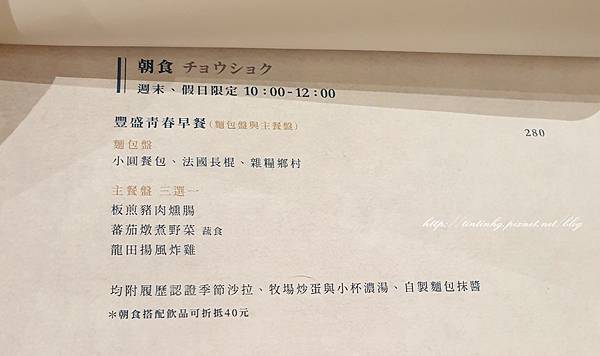 朝食 チョウショク
週末、假日限定 10:00-12:00
豐盛青春早餐(麵包盤與主餐盤) 280
麵包盤
小圓餐包、法國長棍、雜糧鄉村
主餐盤 三選一
板煎豬肉燻腸
蕃茄燉煮野菜 蔬食
龍田揚風炸雞
均附履歷認證季節沙拉、牧場炒蛋與小杯濃湯、自製麵包抹醬
*朝食搭配飲品可折抵40元
http://tintinhg.pixnet.net/blog